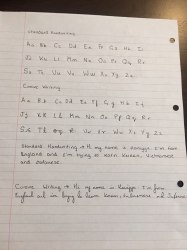 Standard Handwriting
Aa Bb Cc Dd Ee Ff Gg Hh Ii
Jj Kk Ll Mm Nn Oo Pp Qq Rr
Ss Tt Uu Vv Ww Xx Yy Zz
Cursive Writing
Aa Bb Cc Dd Ee Ff Gg Hh Ii
Jj Kk Ll Mm Nn Oo Pp Qq Rr
Ss Tt Uu Vv Ww Xx Yy Zz
Standard Handwriting → Hi my name is I'm from
England and I'm trying to learn Korean, Vietnamese
and
Cursive Writing → Hi my name is I'm from
England and I'm to learn Korean, Vietnamese and